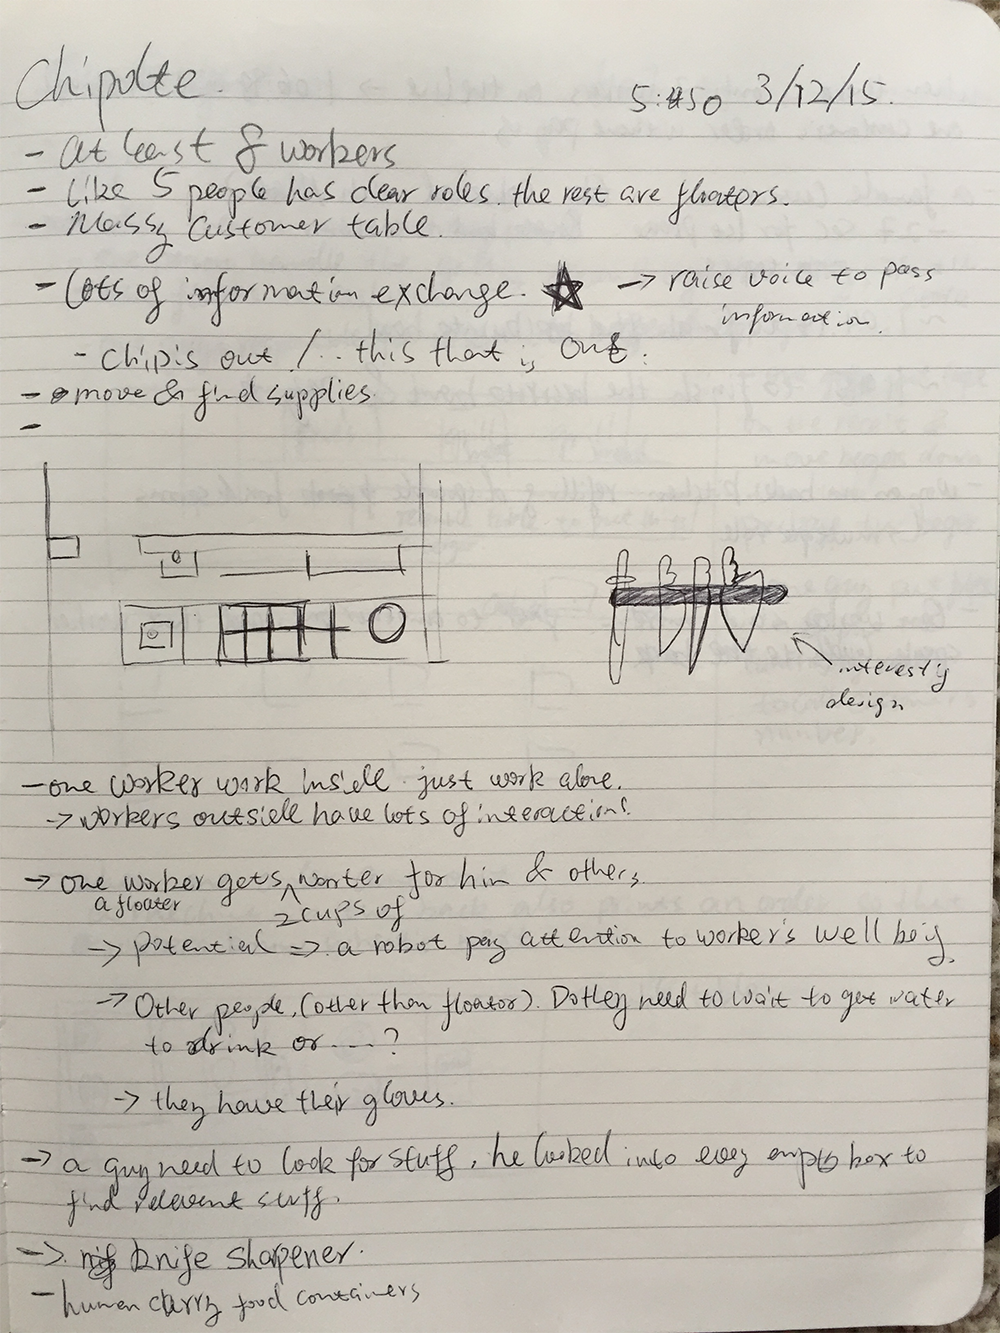 Chipolte.
5:450 3/12/15.
- at least 8 workers
- like 5 people has clear roles. the rest are floators.
- Massy Customer table.
- Lots of information exchange. ☆ -> raise voice to pass
information.
- chipis out /.. this that is out.
- move & find supplies.
-
interest'g
design
- one worker work inside. just work alone.
-> workers outside have lots of interactions.
-> one worker gets ^ warter for him & others.
a floater 2 cups of
-> potential => a robot pay attention to worker's well beig.
-> Other people, (other than floator). Dothey need to wait to get water
to drink or ----?
-> they have their gloves.
-> a guy need to look for stuff, he looked into evey empty box to
find relevent stuff.
-> knife sharpener.
- human carry food containers